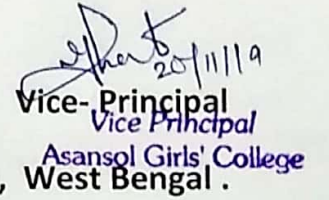 20/11/19
Vice- Principal
Vice Principal
Asansol Girls' College
, West Bengal .